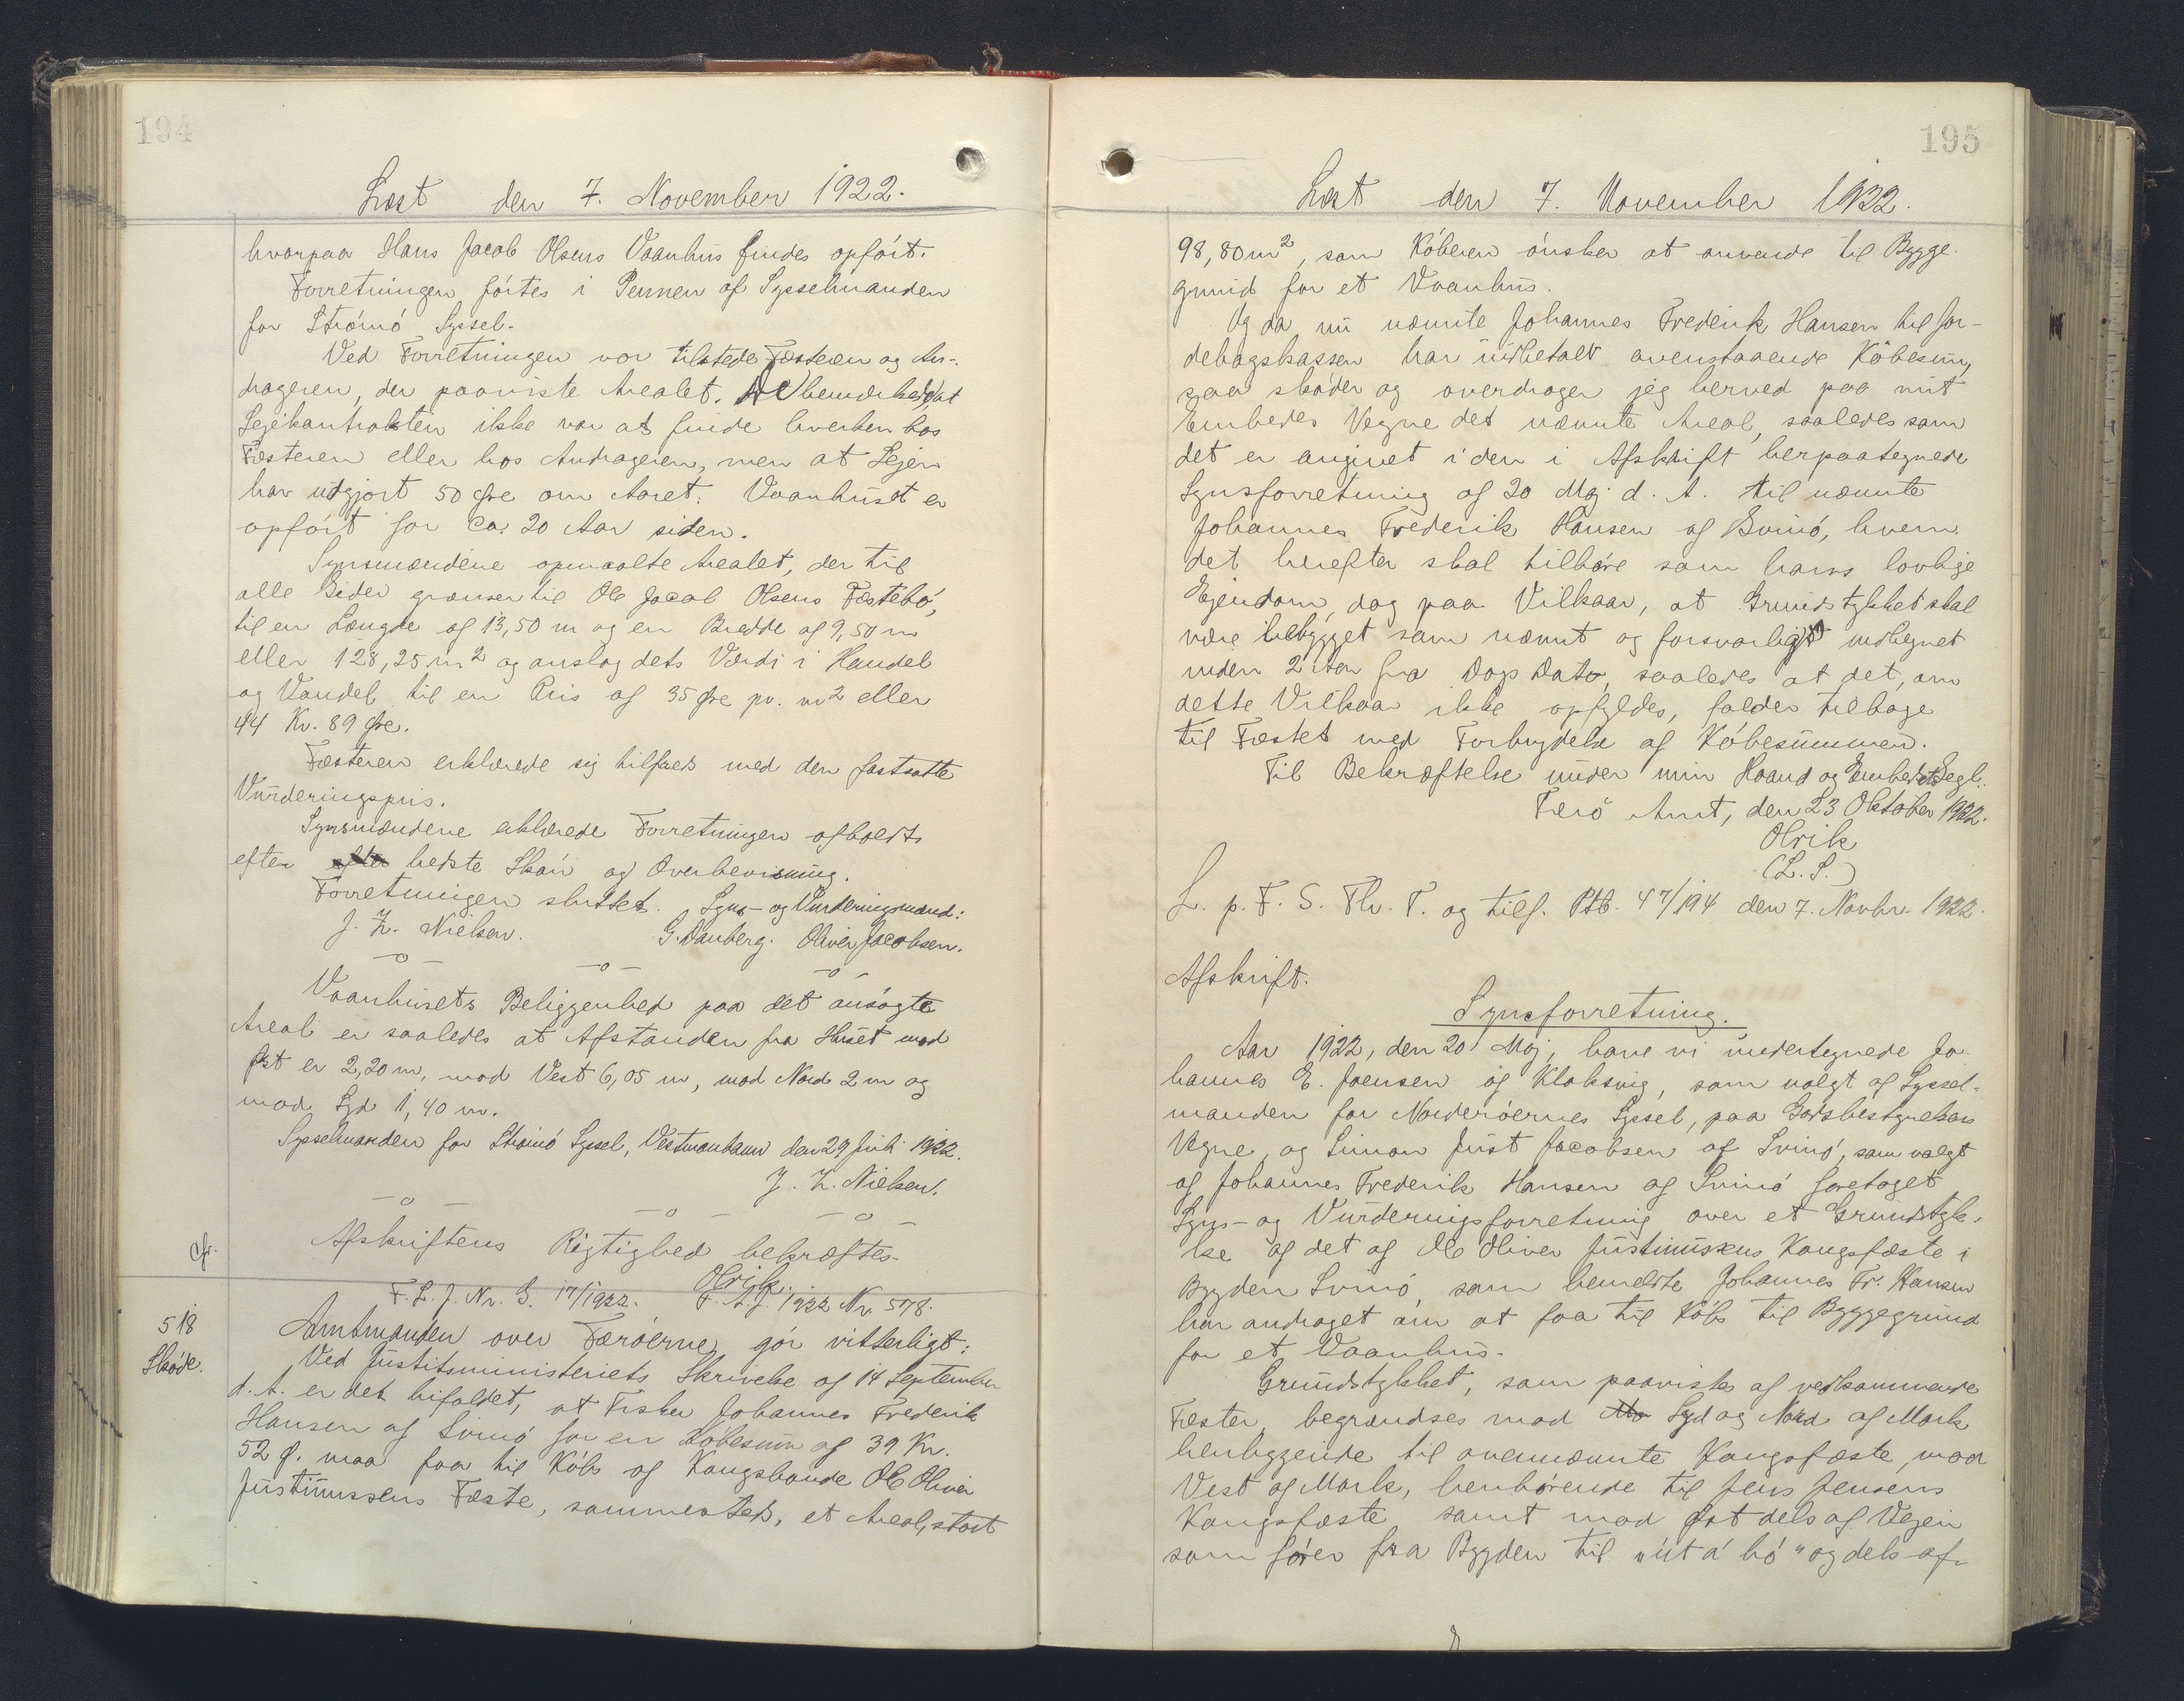 194
Læst den 7. November 1922.
hvorpaa Hans Jacob Olsens Vaanhus findes opført.
Forretningen førtes i Pennen af Sysselmanden
for Strømø Syssel.
Ved Forretningen var tilstede Fæsteren og An-
drageren, der paaviste Arealet. bemærkedes, at
Lejekontrakten ikke var at finde hverken hos
Fæsteren eller hos Andrageren, men at Lejen
har udgjort 50 Øre om Aaret. Vaanhuset er
opført for ca. 20 Aar siden.
Synsmændene opmaalte Arealet, der til
alle Sider grænser til Ole Jacob Olsens Fæstebø,
til en Længde af 13,50 m og en Bredde af 9,50 m
eller 128,25 m² og anslog dets Værdi i Handel
og Vandel til en Pris af 35 Øre pr. m² eller
44 Kr. 89 Øre.
Fæsteren erklærede sig tilfreds med den fastsatte
Vurderingspris.
Synsmændene erklærede Forretningen afholdt
efter efter bedste Skøn og Overbevisning.
Forretningen sluttet. Syns- og Vurderingsmænd:
J. Z. Nielsen. G. Danberg. Oliver Jacobsen.
—o— —o— —o—
Vaanhusets Beliggenhed paa det ansøgte
Areal er saaledes at Afstanden fra Huset mod
Øst er 2,20 m, mod Vest 6,05 m, mod Nord 2 m og
mod Syd 1,40 m.
Sysselmanden for Strømø Syssel, Vestmanhavn den 29 Juli 1922.
J. Z. Nielsen.
—o— —o— —o—
cfr. Afskriftens Rigtighed bekræftes.
Olrik.
F. L. J. Nr. S. 17/1922. F. A. J. 1922 Nr. 578.
518
Skøde.
Amtmanden over Færøerne gør vitterligt:
Ved Justitsministeriets Skrivelse af 14 September
d. A. er det bifaldet, at Fisker Johannes Frederik
Hansen af Svinø for en Købesum af 39 Kr.
52 Ø. maa faa til Købs af Kongsbonde Ole Oliver
Justinussens Fæste, sammesteds, et Areal, stort
195
Læst den 7. November 1922.
98,80 m², som Køberen ønsker at anvende til Bygge-
grund for et Vaanhus.
Og da nu nævnte Johannes Frederik Hansen til Jor-
debogskassen har indbetalt ovenstaaende Købesum,
saa skøder og overdrager jeg herved paa mit
Embedes Vegne det nævnte Areal, saaledes som
det er angivet i den i Afskrift herpaategnede
Synsforretning af 20 Maj d. A. til nævnte
Johannes Frederik Hansen af Svinø, hvem
det herefter skal tilhøre som hans lovlige
Ejendom, dog paa Vilkaar, at Grundstykket skal
være bebygget som nævnt og forsvarligt indhegnet
inden 2 Aar fra Dags Dato, saaledes at det, om
dette Vilkaar ikke opfyldes, falder tilbage
til Fæstet med Forbrydelse af Købesummen.
Til Bekræftelse under min Haand og Embedets Segl.
Færø Amt, den 23 Oktober 1922.
Olrik
(L. S.)
L. p. F. S. Th. T. og tilf. Ptb. 47/194 den 7. Novbr. 1922.
Afskrift.
Synsforretning.
Aar 1922, den 20 Maj, have vi undertegnede Jo-
hannes E. Joensen af Klaksvig, som valgt af Syssel-
manden for Norderøernes Syssel, paa Godsbestyrelsens
Vegne, og Simon Just Jacobsen af Svinø, som valgt
af Johannes Frederik Hansen af Svinø foretaget
Syns- og Vurderingsforretning over et Grundstyk-
ke af det af Ole Oliver Justinussens Kongsfæste i
Bygden Svinø, som bemeldte Johannes Fr. Hansen
har andraget om at faa til Købs til Byggegrund
for et Vaanhus.
Grundstykket, som paavistes af vedkommende
Fæster, begrændses mod Syd og Nord af Mark
henliggende til ovennævnte Kongsfæste, mod
Vest af Mark, henhørende til Jens Jensens
Kongsfæste samt mod Øst dels af Vejen
som fører fra Bygden til „út á bø" og dels af